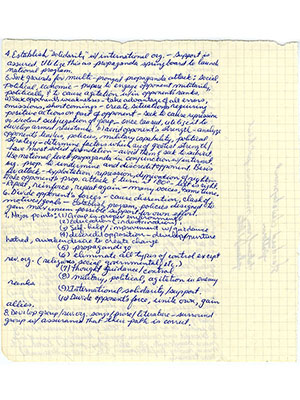 4. Establish "solidarity" w/ international org. - support is
assured. Utilize this as propaganda springboard to launch
national program.
5. Set goals for multi-pronged propaganda attack: social,
political, economic - purpose to engage opponent militarily,
politically, & to cause agitation within opponents ranks
Seek opponents weaknesses - take advantage of all errors,
omissions, shortcomings - create situations requiring
positive action on part of opponent - seek to cause repression
or violent subjugation of group. Once secured, utilize it to
develop armed resistance. Avoid opponent's strength - analyze
opponents leaders, policies, military capability, political
strategy - determine factors which are of greatest strength/
have most solid foundation - avoid them & seek to subvert.
Use national level propaganda in conjunction w/ internat.
org. prop. to undermine and discredit opponent. Use as
attack - exploitation, repression, deprivation of rights.
Base opponents prop. attack, & turn it 180° - left is right.
Repeat, reinforce, repeat again - many voices, same tune.
6. Divide opponent's forces - cause dissention, lack of
unity/goals - Establish program, police division to
gain maximum possible support for own effort.
7. Major points: (1) Group is single
(2) education (indoctrination)
(3) Self-help/improvement w/ guidance
(4) develop opposition - develop/nurture
hatred, create desire to create change
(5) propagandize
(6) eliminate all types of control except
rev. org. (religious, social, governmental, etc.)
(7) thought guidance/control
(8) military, political, agitation in enemy
ranks
(9) International solidarity/support.
(10) Divide opponents force, unite own, gain
allies.
8. Develop group/survey, songs/prose/literature - surround
group w/ assurance that their path is correct.